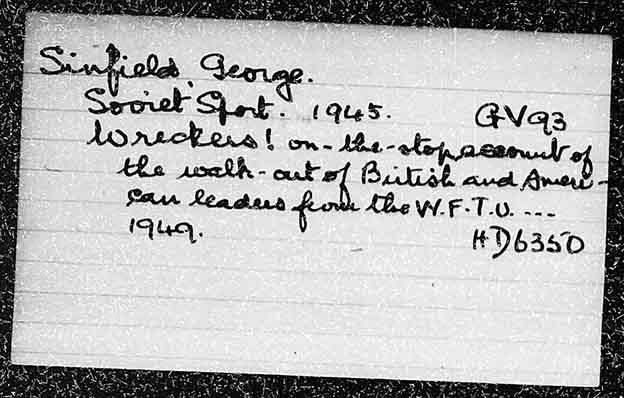 Sinfield, George.
Soviet Sport. 1945. GV93
Wreckers! on-the-stop account of
the walk-out of British and Ameri-
can leaders from the W.F.T.U. ---
1949. HD6350